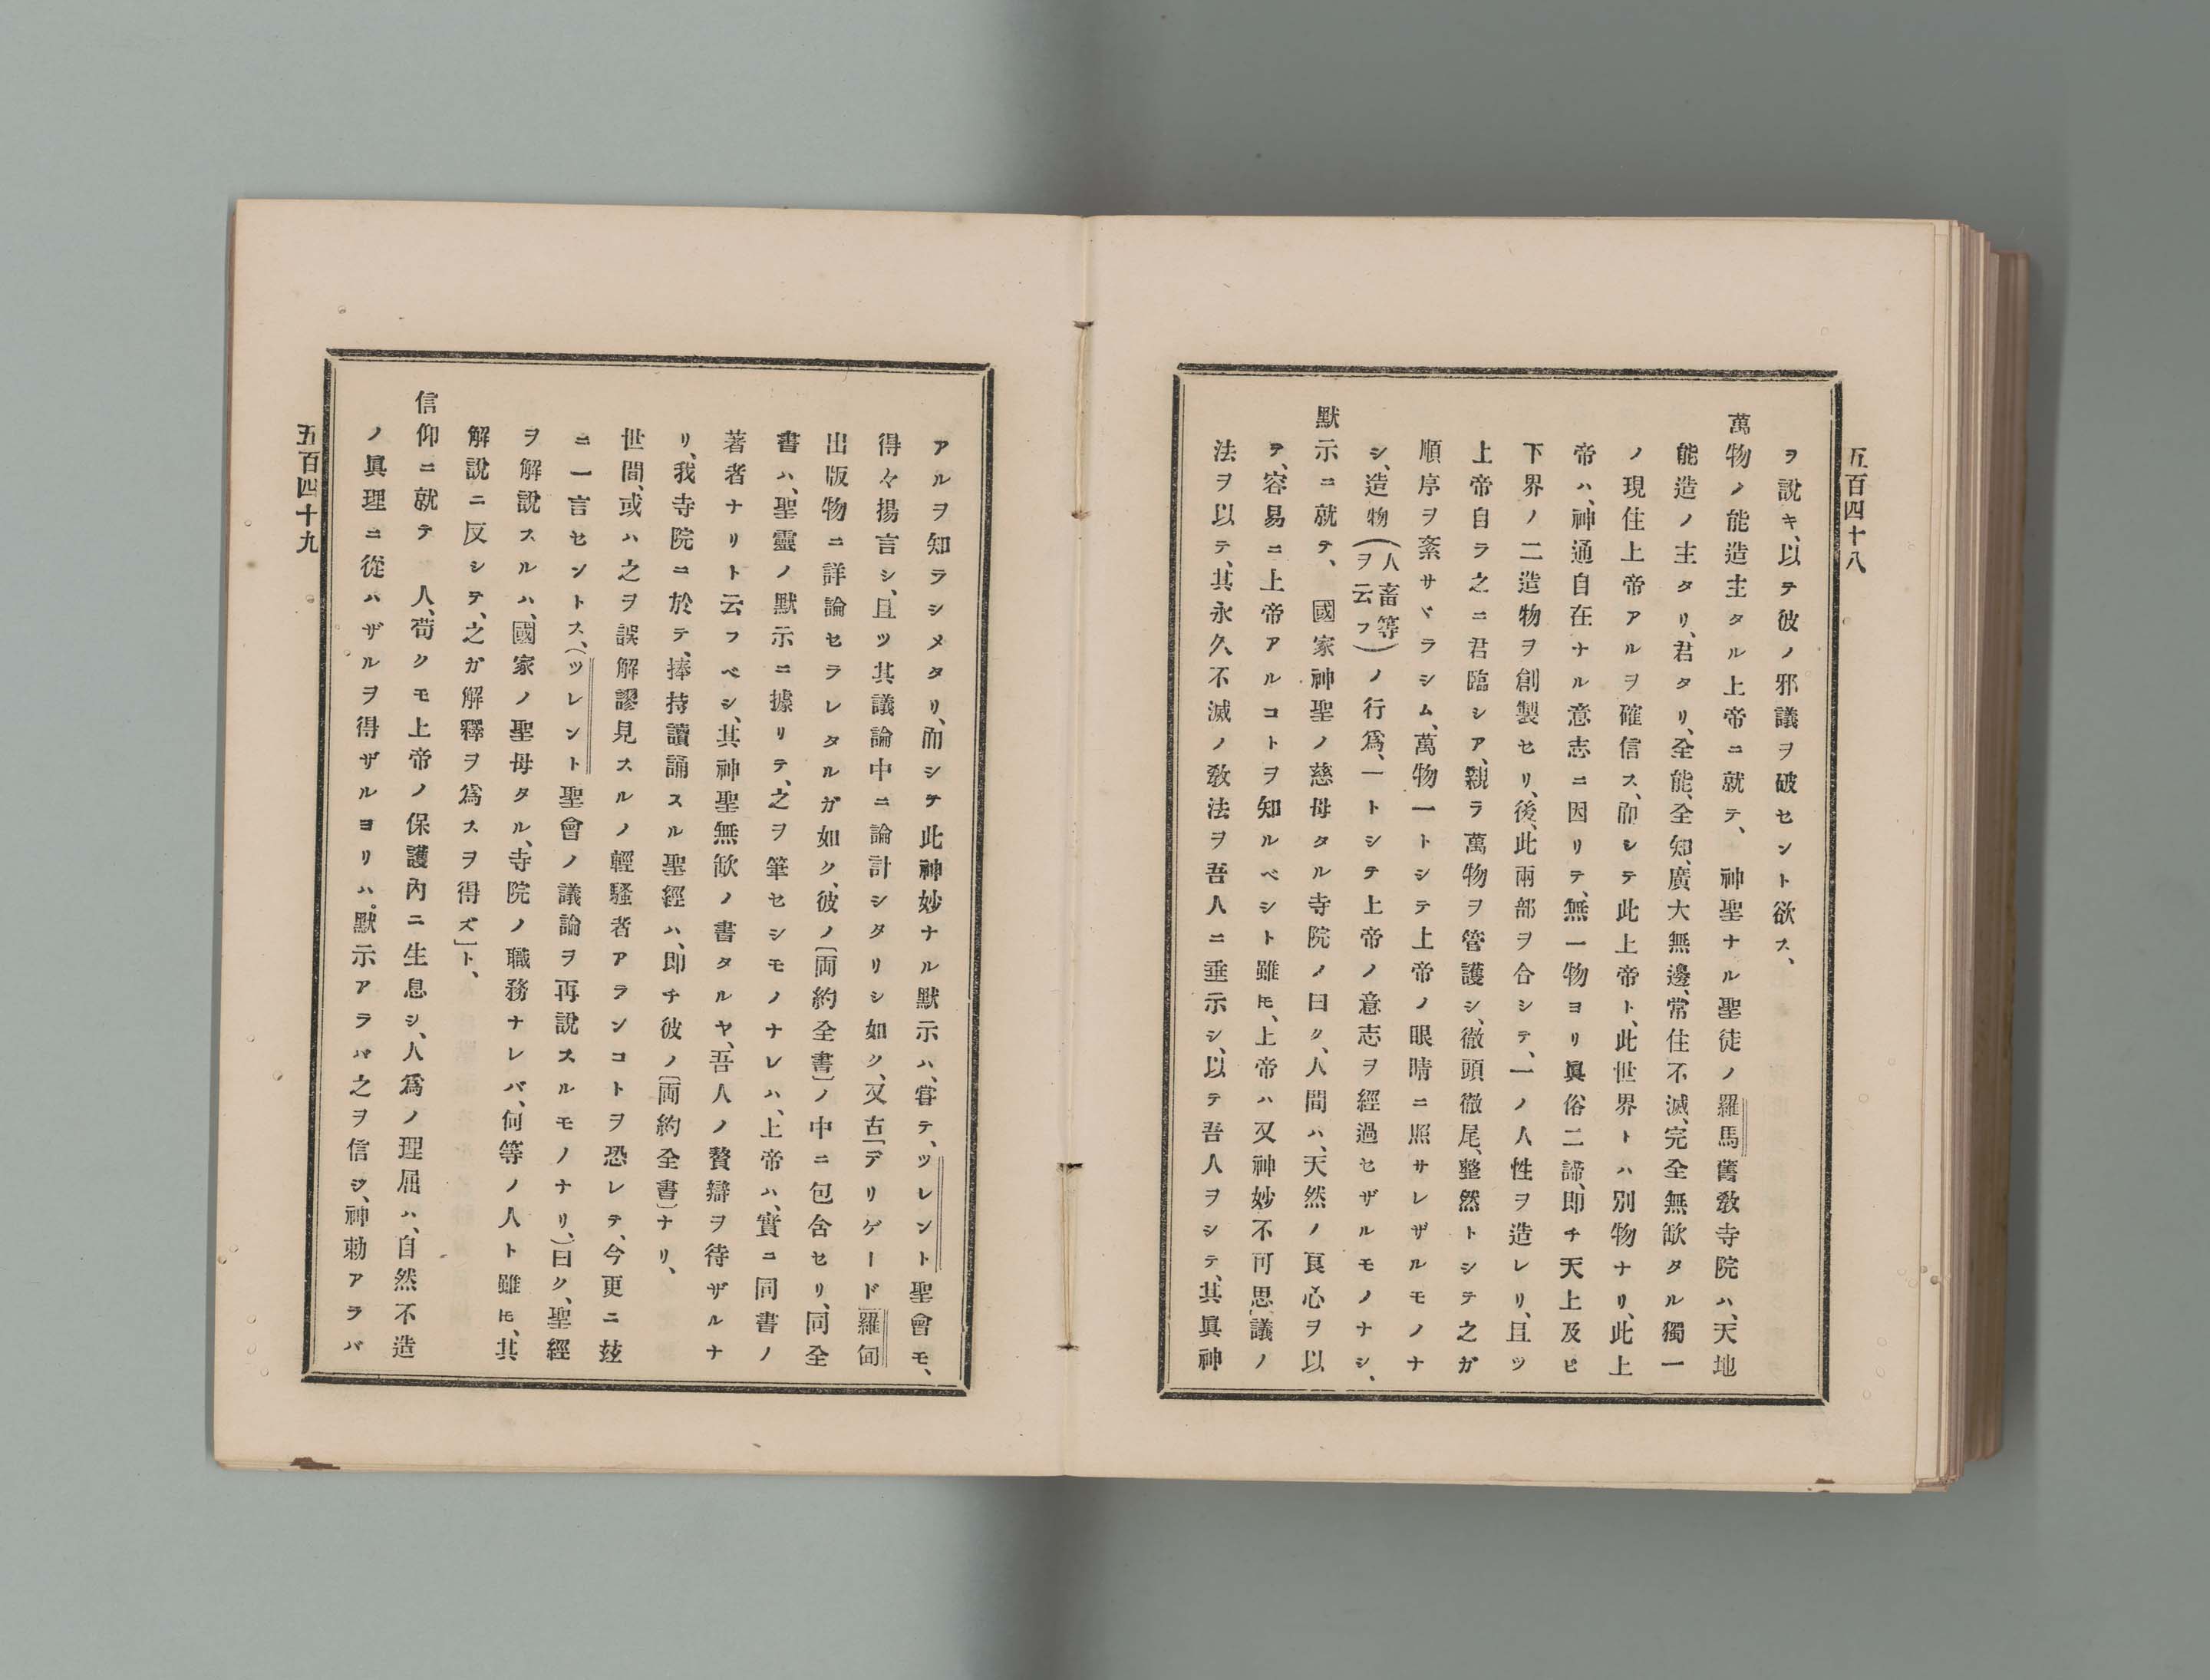 五百四十八
ヲ說キ、以テ彼ノ邪議ヲ破セント欲ス、
萬物ノ能造主タル上帝ニ就テ、　神聖ナル聖徒ノ羅馬舊敎寺院ハ、天地
能造ノ主タリ、君タリ、全能、全知、廣大無邊、常住不滅、完全無缺タル獨一
ノ現住上帝アルヲ確信ス、而シテ此上帝ト、此世界トハ別物ナリ、此上
帝ハ、神通自在ナル意志ニ因リテ、無一物ヨリ眞俗二諦、即チ天上及ヒ
下界ノ二造物ヲ創製セリ、後、此兩部ヲ合シテ、一ノ人性ヲ造レリ、且ツ
上帝自ラ之ニ君臨シア、親ラ萬物ヲ管護シ、徹頭徹尾、整然トシテ之ガ
順序ヲ紊サヾラシム、萬物一トシテ上帝ノ眼睛ニ照サレザルモノナ
シ、造物（人畜等ヲ云フ）ノ行爲、一トシテ上帝ノ意志ヲ經過セザルモノナシ、
默示ニ就テ、　國家神聖ノ慈母タル寺院ノ曰ク、人間ハ、天然ノ良心ヲ以
テ、容易ニ上帝アルコトヲ知ルベシト雖ﾄﾓ、上帝ハ又神妙不可思議ノ
法ヲ以テ、其永久不滅ノ敎法ヲ吾人ニ垂示シ、以テ吾人ヲシテ、其眞神
アルヲ知ラシメタリ、而シテ此神妙ナル默示ハ、甞テ、ツレント聖會モ、
得々揚言シ、且ツ其議論中ニ論計シタリシ如ク、又古「デリゲード羅甸
出版物ニ詳論セラレタルガ如ク、彼ノ「兩約全書」ノ中ニ包含セリ、同全
書ハ、聖靈ノ默示ニ據リテ、之ヲ筆セシモノナレハ、上帝ハ、實ニ同書ノ
著者ナリト云フベシ、其神聖無缺ノ書タルヤ、吾人ノ贅辯ヲ待ザルナ
リ、我寺院ニ於テ、捧持讀誦スル聖經ハ、即チ彼ノ「兩約全書」ナリ、
世間、或ハ之ヲ誤解謬見スルノ輕騷者アランコトヲ恐レテ、今更ニ玆
ニ一言セントス、（ツレント聖會ノ議論ヲ再說スルモノナリ、）曰ク、聖經
ヲ解說スルハ、國家ノ聖母タル、寺院ノ職務ナレバ、何等ノ人ト雖ﾄﾓ、其
解說ニ反シテ、之ガ解釋ヲ爲スヲ得ズ」ト、
信仰ニ就テ　人、苟クモ上帝ノ保護內ニ生息シ、人爲ノ理屈ハ、自然不造
ノ眞理ニ從ハザルヲ得ザルヨリハ。默示アラバ之ヲ信ジ、神勅アラバ
五百四十九